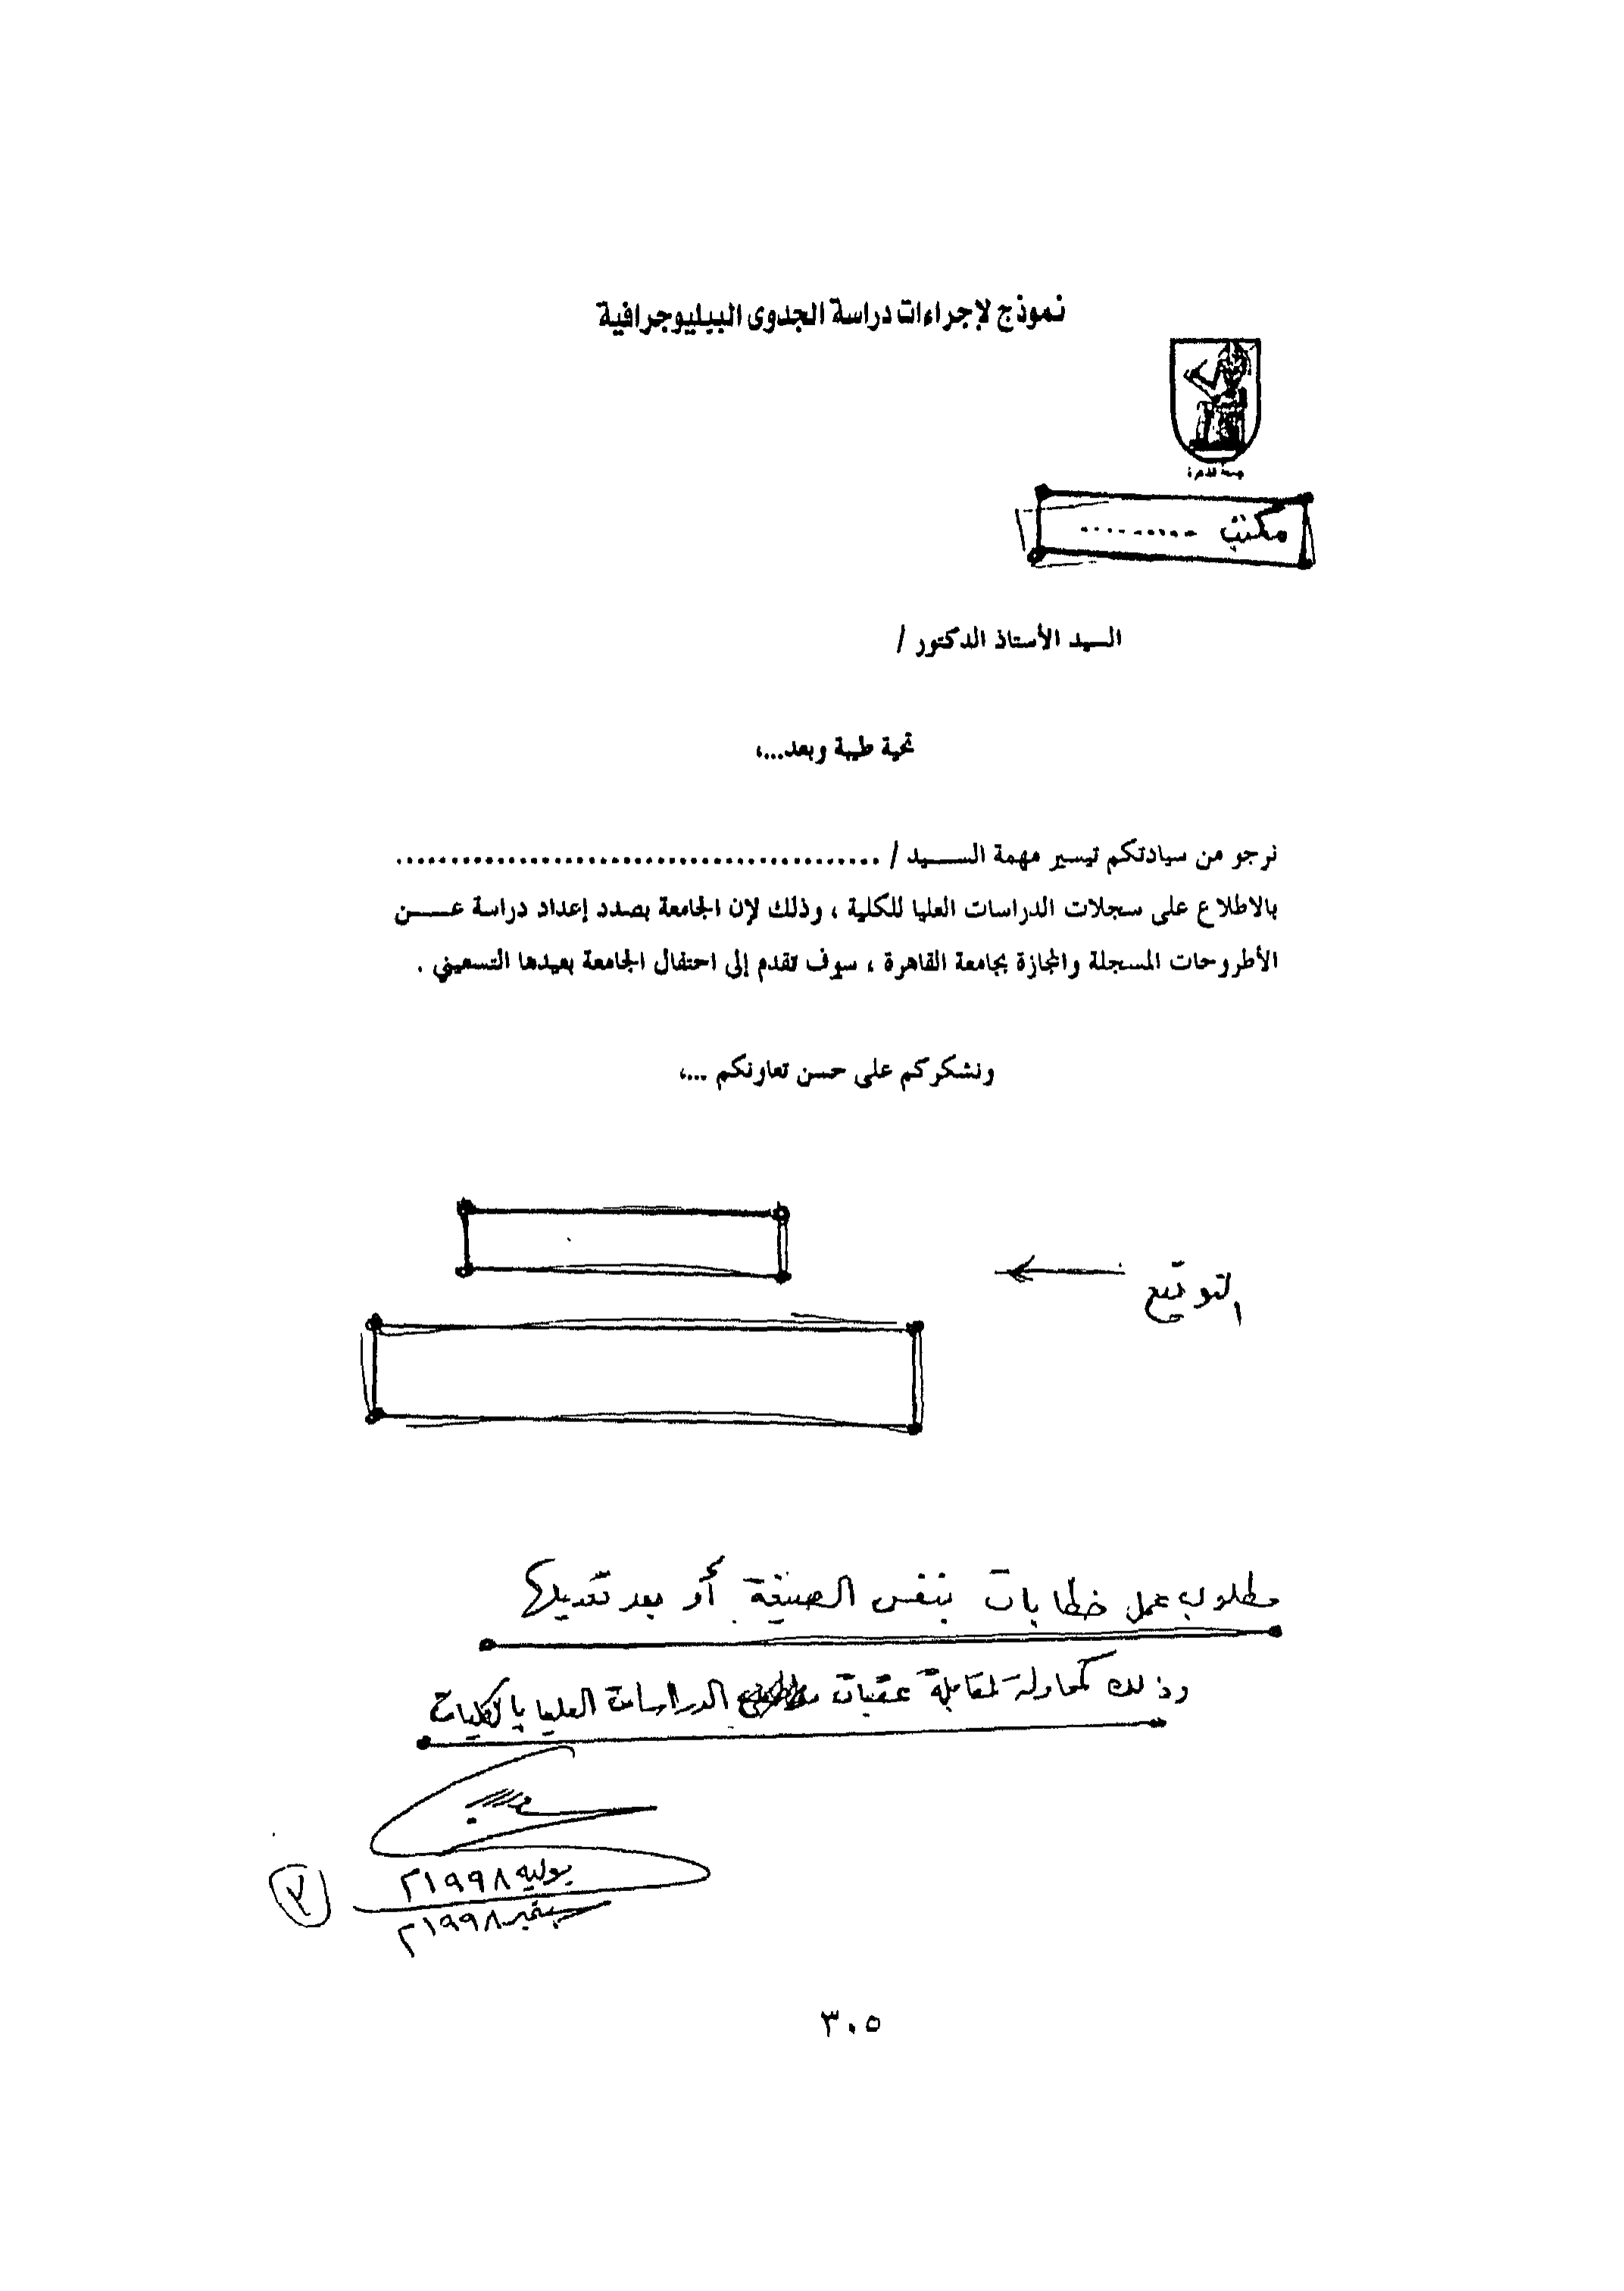 نموذج لإجراءات دراسة الجدوى الببليوجرافية
جامعة القاهرة
مكتب .........
السيد الأستاذ الدكتور /
تحية طيبة وبعد...،
نرجو من سيادتكم تيسير مهمة الســـيد / ..........................................
بالاطلاع على سجلات الدراسات العليا للكلية ، وذلك لإن الجامعة بصدد إعداد دراسة عـــن
الأطروحات المسجلة والمجازة بجامعة القاهرة ، سوف تقدم إلى احتفال الجامعة بعيدها التسعيني .
ونشكركم على حسن تعاونكم ...،
التوقيع
مطلوب عمل خطابات بنفس الصيغة أو بعد تعديلها
وذلك كمحاولة لمقابلة عقبات الدراسات العليا بالكليات
يوليه ١٩٩٨م
سبتمبر ١٩٩٨م
٢
٣٠٥